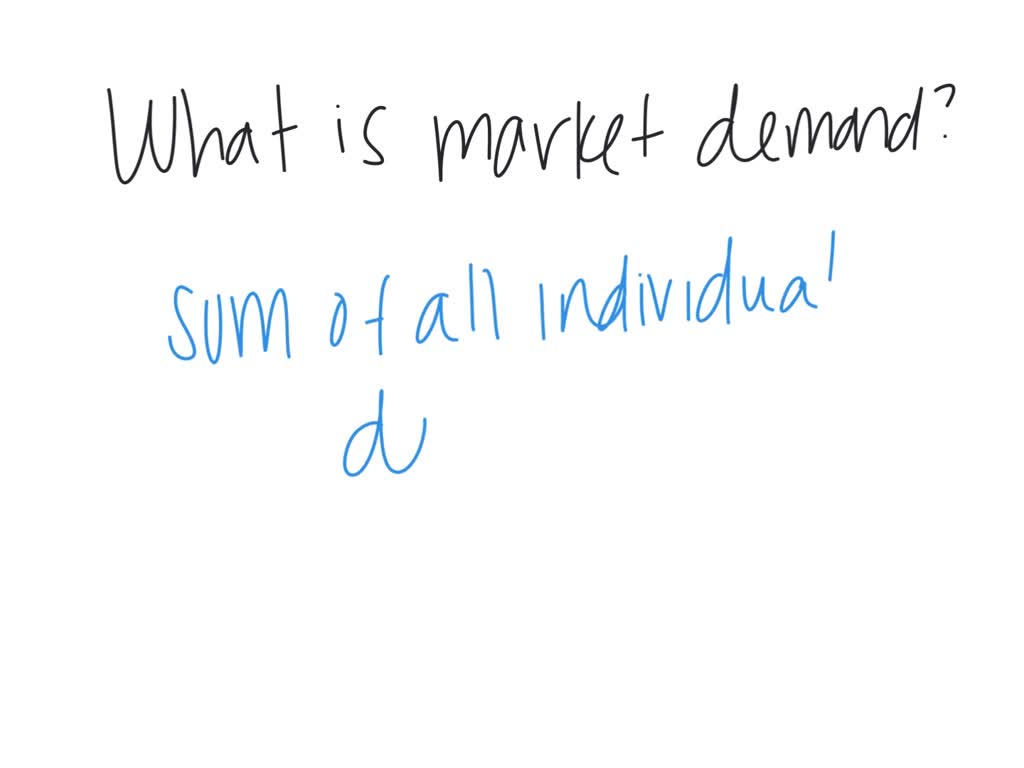 What is market demand?
sum of all individual
d